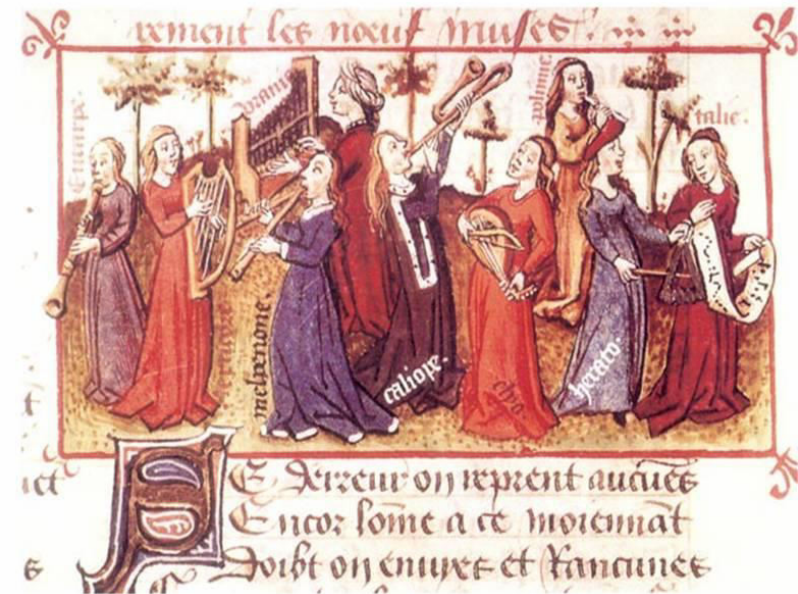 rement les noeuf muses.
Euturpe.
uranie
polimie.
talie.
melpenone.
caliope.
clio
hecato.
E Derreur on reprent aucuẽs
Encor sõme a ce moiennãt
Doibt on enuyes et Rancunes
ct
t
s